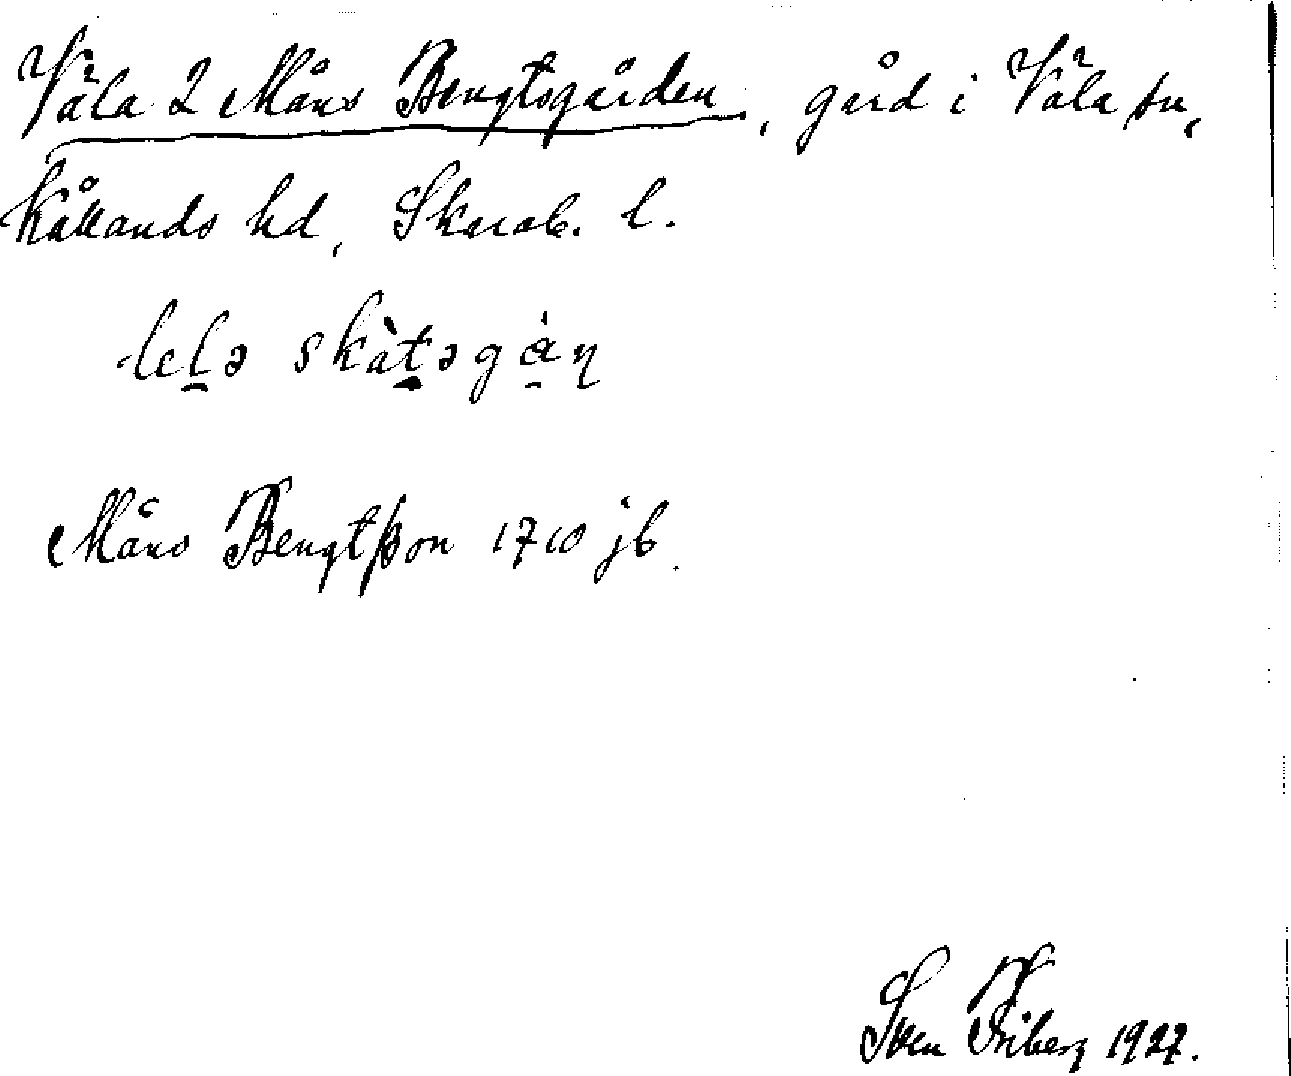 Våla 2 Måns Bengtsgården, gård i Våla sn,
Kållands hd, Skarab. l.
lelə skàtəgán
Måns Bengtßon 1710 jb.
Sven Friberg 1927.